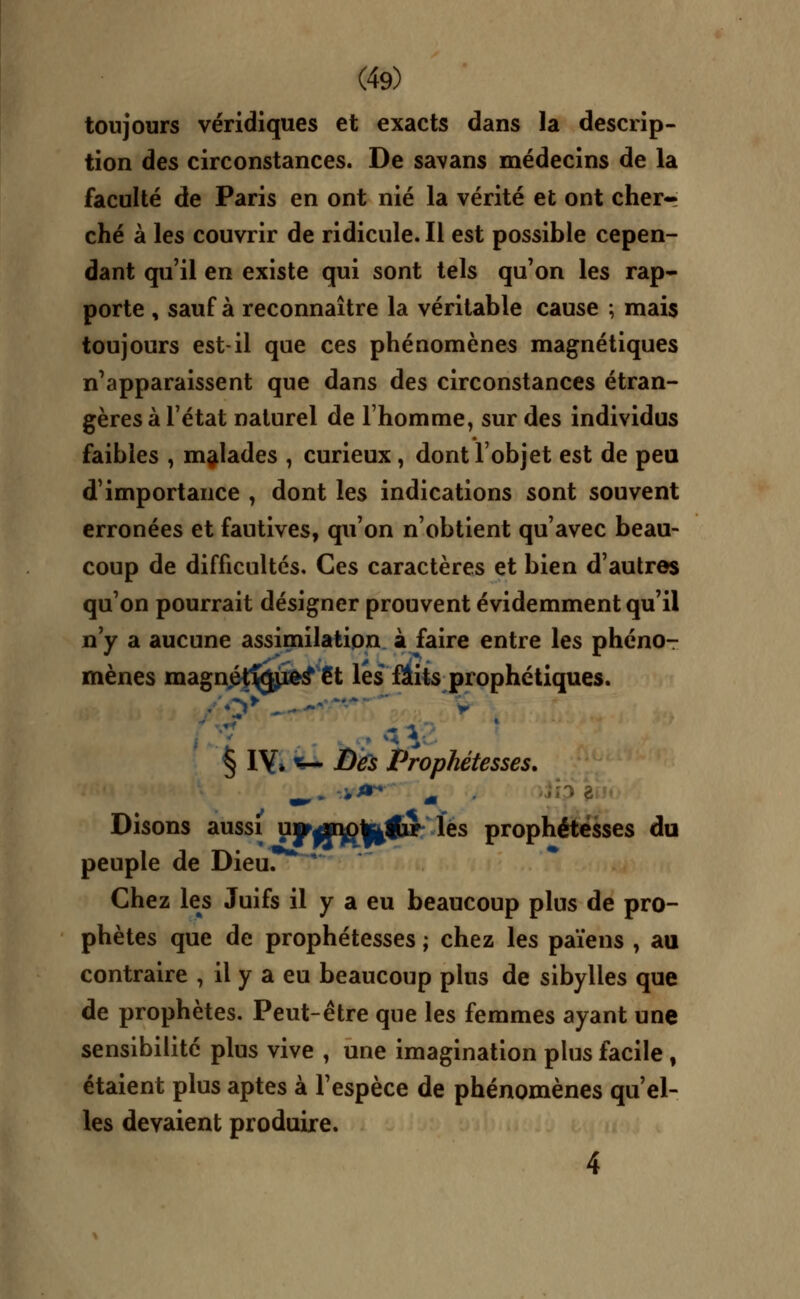 (49)
toujours véridiques et exacts dans la descrip-
tion des circonstances. De savans médecins de la
faculté de Paris en ont nié la vérité et ont cher-
ché à les couvrir de ridicule. Il est possible cepen-
dant qu'il en existe qui sont tels qu'on les rap-
porte , sauf à reconnaître la véritable cause ; mais
toujours est-il que ces phénomènes magnétiques
n'apparaissent que dans des circonstances étran-
gères à l'état naturel de l'homme, sur des individus
faibles , malades , curieux , dont l'objet est de peu
d'importance , dont les indications sont souvent
erronées et fautives, qu'on n'obtient qu'avec beau-
coup de difficultés. Ces caractères et bien d'autres
qu'on pourrait désigner prouvent évidemment qu'il
n'y a aucune assimilation à faire entre les phéno-
mènes magnétiques et les faits prophétiques.
§ IV. — Des Prophétesses.
Disons aussi un mot sur les prophétesses du
peuple de Dieu.
Chez les Juifs il y a eu beaucoup plus de pro-
phètes que de prophétesses ; chez les païens , au
contraire , il y a eu beaucoup plus de sibylles que
de prophètes. Peut-être que les femmes ayant une
sensibilité plus vive , une imagination plus facile ,
étaient plus aptes à l'espèce de phénomènes qu'el-
les devaient produire.
4